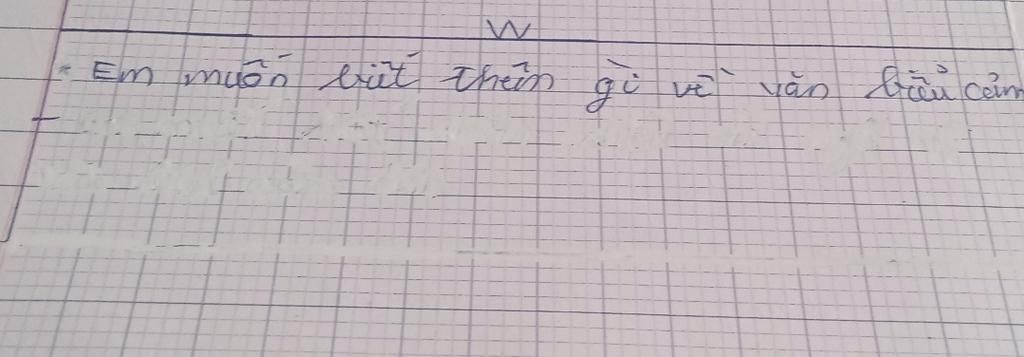 W
- Em muốn biết thêm gì về văn biểu cảm